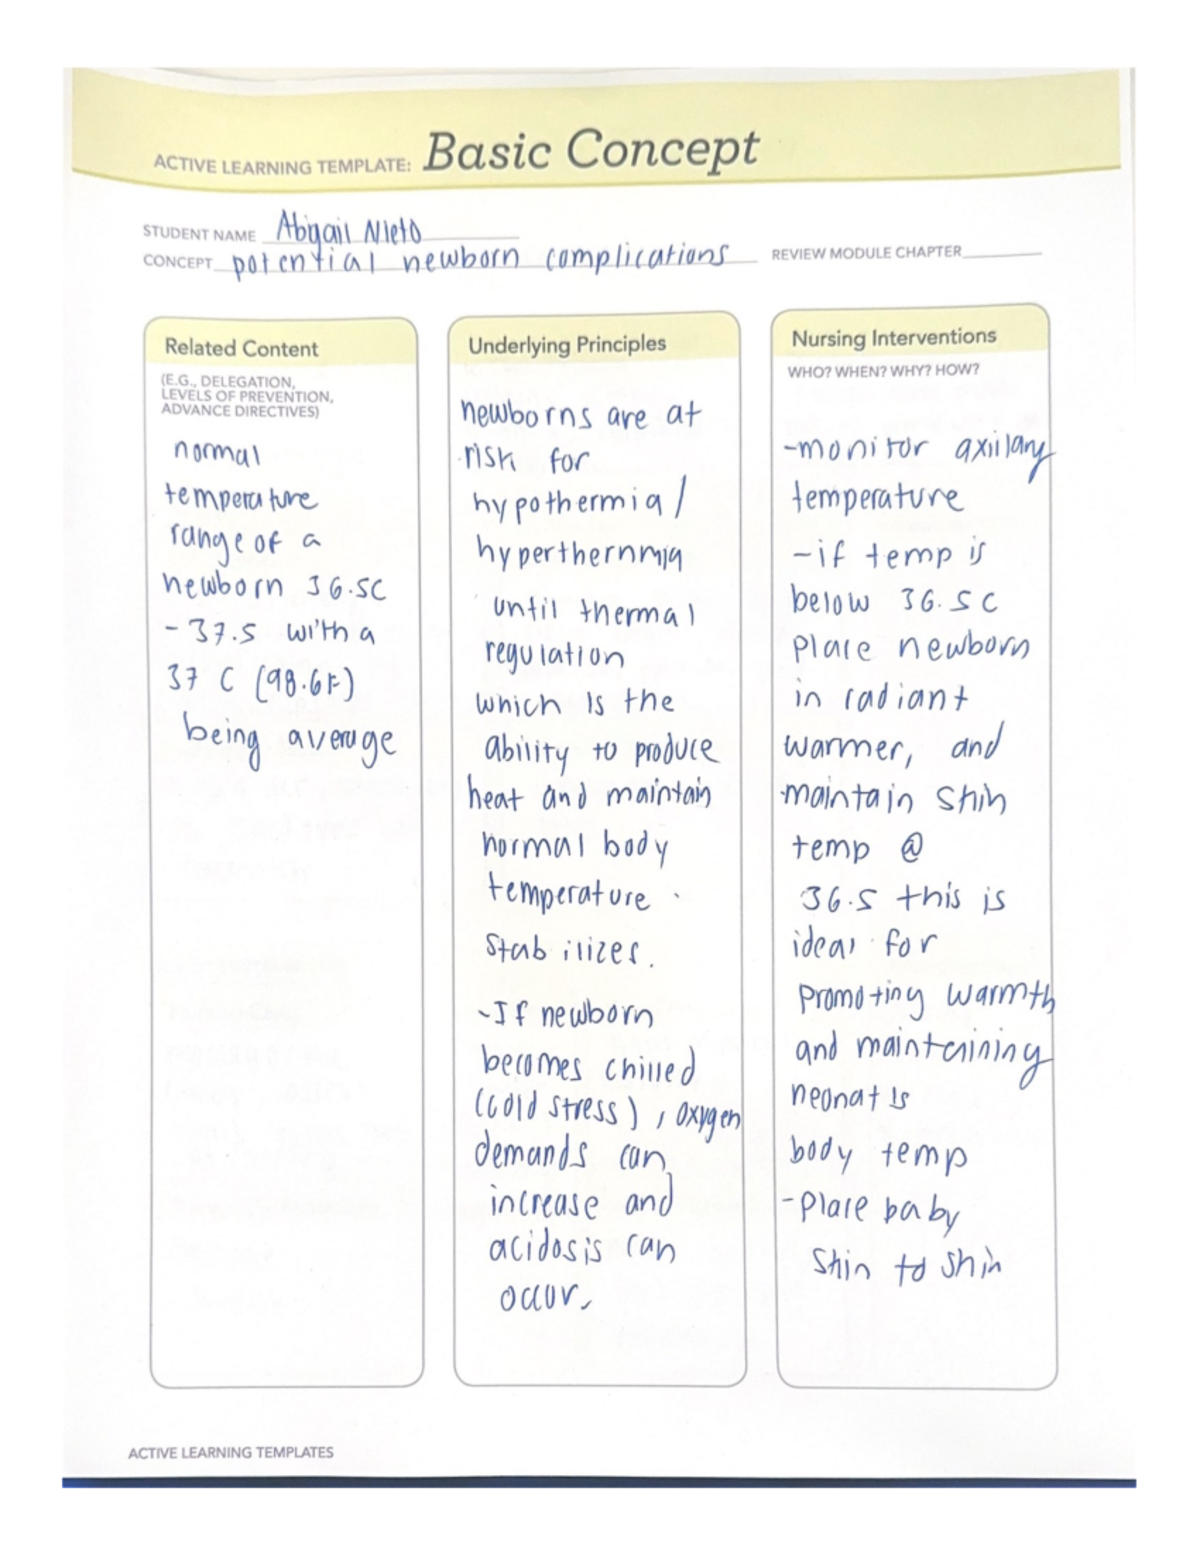 ACTIVE LEARNING TEMPLATE: Basic Concept
STUDENT NAME Abigail Nieto
CONCEPT potential newborn complications REVIEW MODULE CHAPTER
Related Content
(E.G., DELEGATION,
LEVELS OF PREVENTION,
ADVANCE DIRECTIVES)
normal
temperature
range of a
newborn 36.5C
- 37.5 with a
37 C (98.6F)
being average
Underlying Principles
newborns are at
risk for
hypothermia /
hyperthernmia
until thermal
regulation
which is the
ability to produce
heat and maintain
normal body
temperature
stabilizes.
-If newborn
becomes chilled
(cold stress), oxygen
demands can
increase and
acidosis can
occur.
Nursing Interventions
WHO? WHEN? WHY? HOW?
-monitor axillary
temperature
-if temp is
below 36.5C
place newborn
in radiant
warmer, and
maintain skin
temp @
36.5 this is
ideal for
promoting warmth
and maintaining
neonat is
body temp
-place baby
skin to skin
ACTIVE LEARNING TEMPLATES